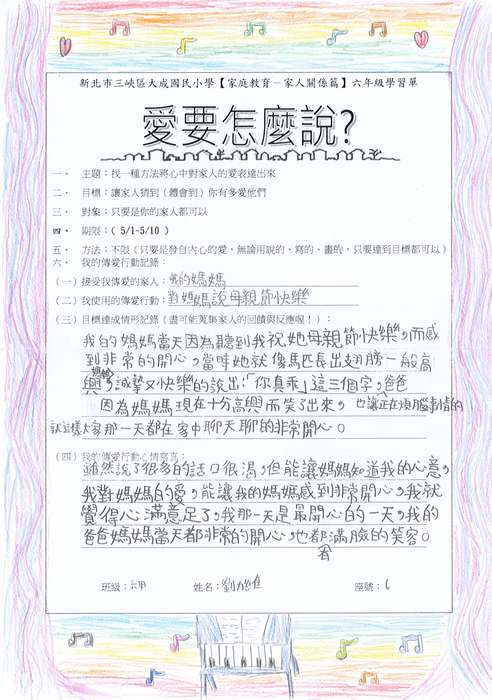 新北市三峽區大成國民小學【家庭教育－家人關係篇】六年級學習單
愛要怎麼說?
一、 主題：找一種方法將心中對家人的愛表達出來
二、 目標：讓家人猜到（體會到）你有多愛他們
三、 對象：只要是你的家人都可以
四、 期限：( 5/1-5/10 )
五、 方法：不限（只要是發自內心的愛，無論用說的、寫的、畫的，只要達到目標都可以）
六、 我的傳愛行動記錄：
（一）接受我傳愛的家人：我的媽媽
（二）我使用的傳愛行動：對媽媽說母親節快樂
（三）目標達成情形記錄（盡可能蒐集家人的回饋與反應喔！）：
我的媽媽當天因為聽到我祝她母親節快樂，而感
到非常的開心。當時她就像馬匹長出翅膀一般高
興，媽媽誠摯又快樂的說出:「你真乖」這三個字。爸爸
因為媽媽現在十分高興而笑了出來，也讓正在煩腦事情的
就這樣大家那一天都在家中聊天聊的非常開心。
（四）我的傳愛行動心情寫真：
雖然說了很多的話口很渴，但能讓媽媽知道我的心意，
我對媽媽的愛，能讓我的媽媽感到非常開心，我就
覺得心滿意足了。我那一天是最開心的一天，我的
爸爸媽媽當天都非常的開心，也都滿臉的笑容。
班級：六甲 姓名：劉 座號：6